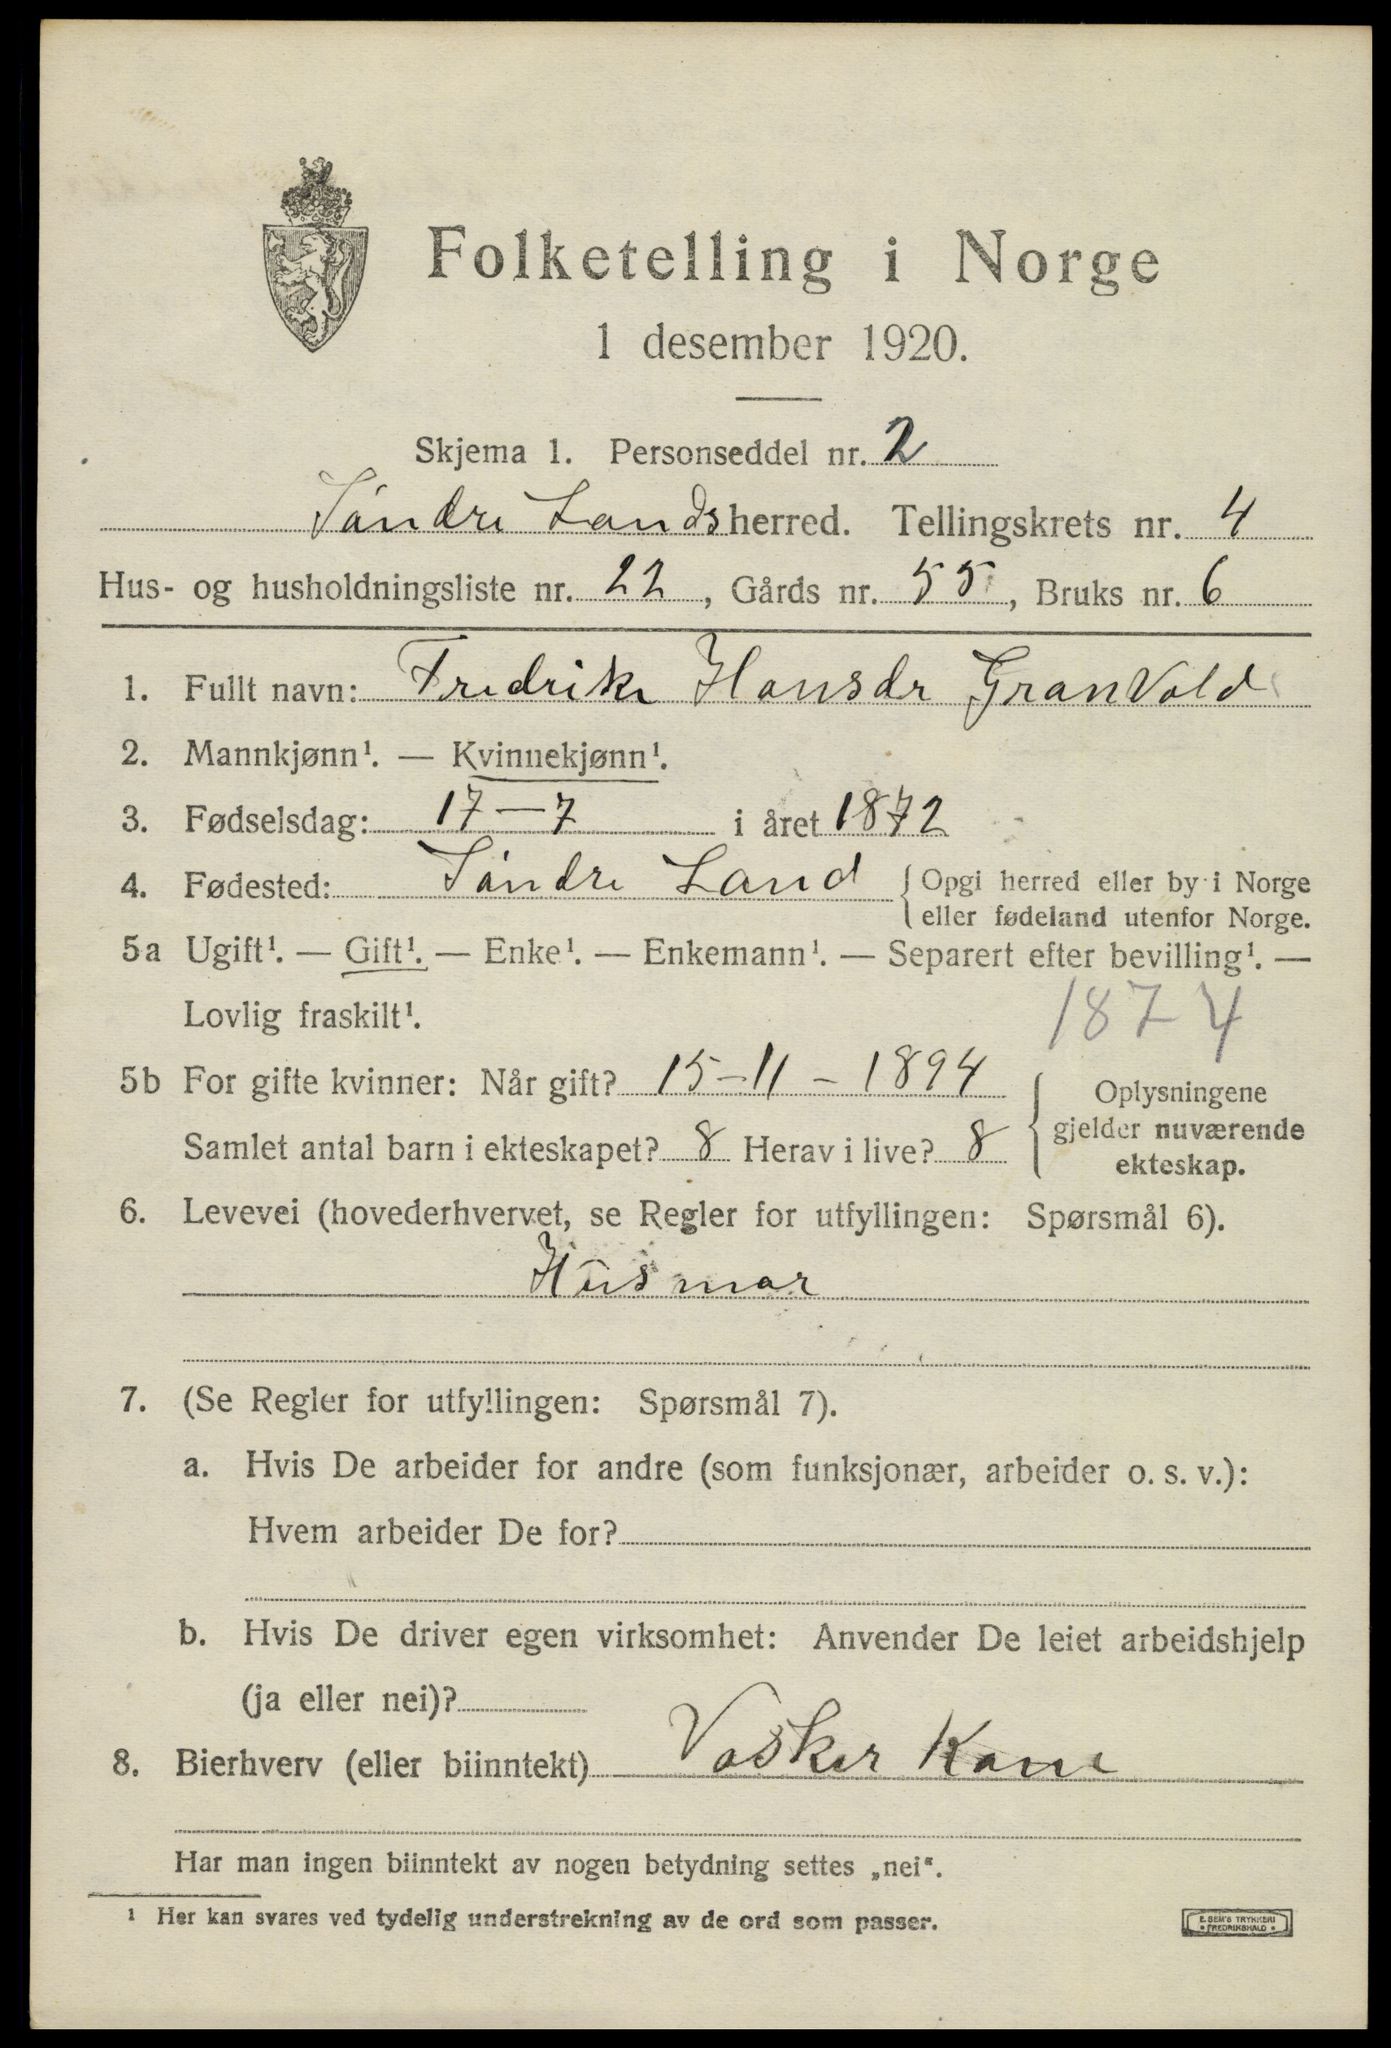 Folketelling i Norge
1 desember 1920.
Skjema 1. Personseddel nr. 2
Söndre Lands herred. Tellingskrets nr. 4
Hus- og husholdningsliste nr. 22, Gårds nr. 55, Bruks nr. 6
1. Fullt navn: Fredrike Hansdr Granvold
2. Mannkjønn¹. — Kvinnekjønn¹.
3. Fødselsdag: 17-7 i året 1872
4. Fødested: Söndre Land { Opgi herred eller by i Norge
eller fødeland utenfor Norge.
5a Ugift¹. — Gift¹. — Enke¹. — Enkemann¹. — Separert efter bevilling¹. —
Lovlig fraskilt¹.
1874
5b For gifte kvinner: Når gift? 15-11-1894
Samlet antal barn i ekteskapet? 8 Herav i live? 8
{ Oplysningene
gjelder nuværende
ekteskap.
6. Levevei (hovederhvervet, se Regler for utfyllingen: Spørsmål 6).
Husmor
7. (Se Regler for utfyllingen: Spørsmål 7).
a. Hvis De arbeider for andre (som funksjonær, arbeider o. s. v.):
Hvem arbeider De for?
b. Hvis De driver egen virksomhet: Anvender De leiet arbeidshjelp
(ja eller nei)?
8. Bierhverv (eller biinntekt) Vasker Kone
Har man ingen biinntekt av nogen betydning settes „nei“.
¹ Her kan svares ved tydelig understrekning av de ord som passer.
E. SEM'S TRYKKERI
• FREDRIKSHALD •